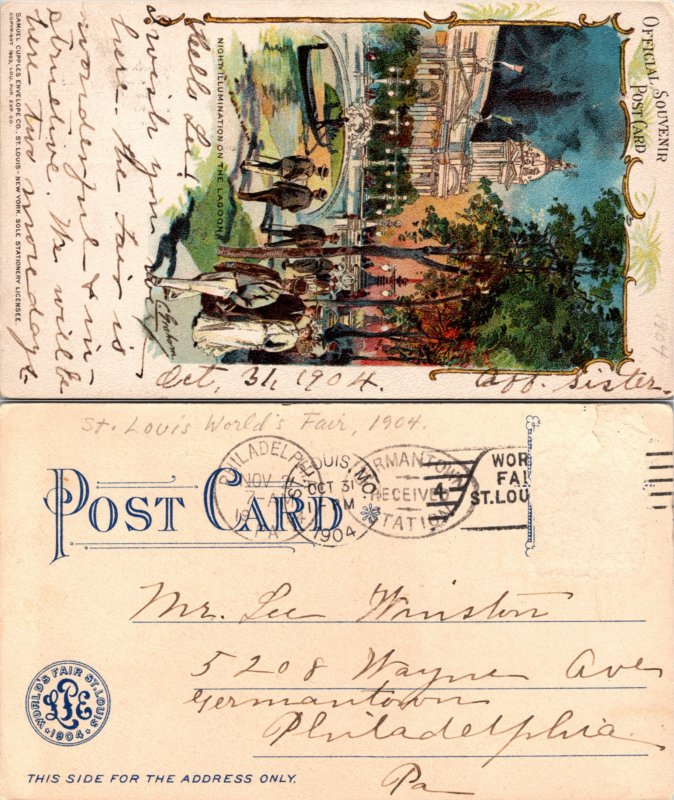 OFFICIAL SOUVENIR
POST CARD
NIGHT ILLUMINATION ON THE LAGOON
Hello Lee!
wish you
here. the fair is
wonderful & in-
structive. We will be
here two more days.
Oct, 31, 1904.
Aff. Sister.
1904
SAMUEL CUPPLES ENVELOPE CO., ST. LOUIS - NEW YORK, SOLE STATIONERY LICENSEE.
COPYRIGHT 1903, LOU. PUR. EXP. CO.
St. Louis World's Fair, 1904.
POST CARD
PHILADELPHIA
NOV 2
7-AM
PA
ST. LOUIS, MO.
OCT 31
1904
GERMANTOWN
RECEIVED
STATION
4
WOR
FAI
ST.LOU
Mr. Lee Winston
5208 Wayne Ave
Germantown
Philadelphia
Pa
WORLD'S FAIR ST. LOUIS
LPE
1904
THIS SIDE FOR THE ADDRESS ONLY.